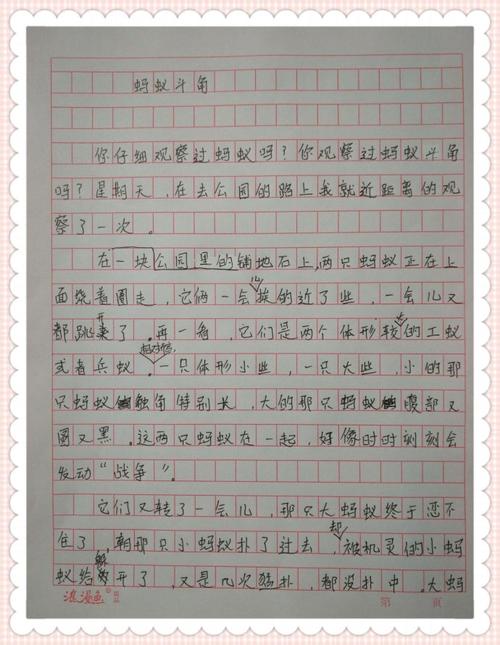 蚂蚁斗角
你仔细观察过蚂蚁吗？你观察过蚂蚁斗角
吗？星期天，在去公园的路上我就近距离的观
察了一次。
在一块公园里的铺地石上，两只蚂蚁正在上
面绕着圈走，它俩一会儿挨的近了些，一会儿又
都跳开了。再一看，它们是两个体形较大的工蚁
或者兵蚁。相对而言，一只体形小些，一只大些，小的那
只蚂蚁触角特别长，大的那只蚂蚁腹部又
圆又黑。这两只蚂蚁在一起，好像时时刻刻会
发动“战争”。
它们又转了一会儿，那只大蚂蚁终于忍不
住了，朝那只小蚂蚁扑了过去，却被机灵的小蚂
蚁给躲开了，又是几次猛扑，都没扑中，大蚂
浪漫鱼
第 页